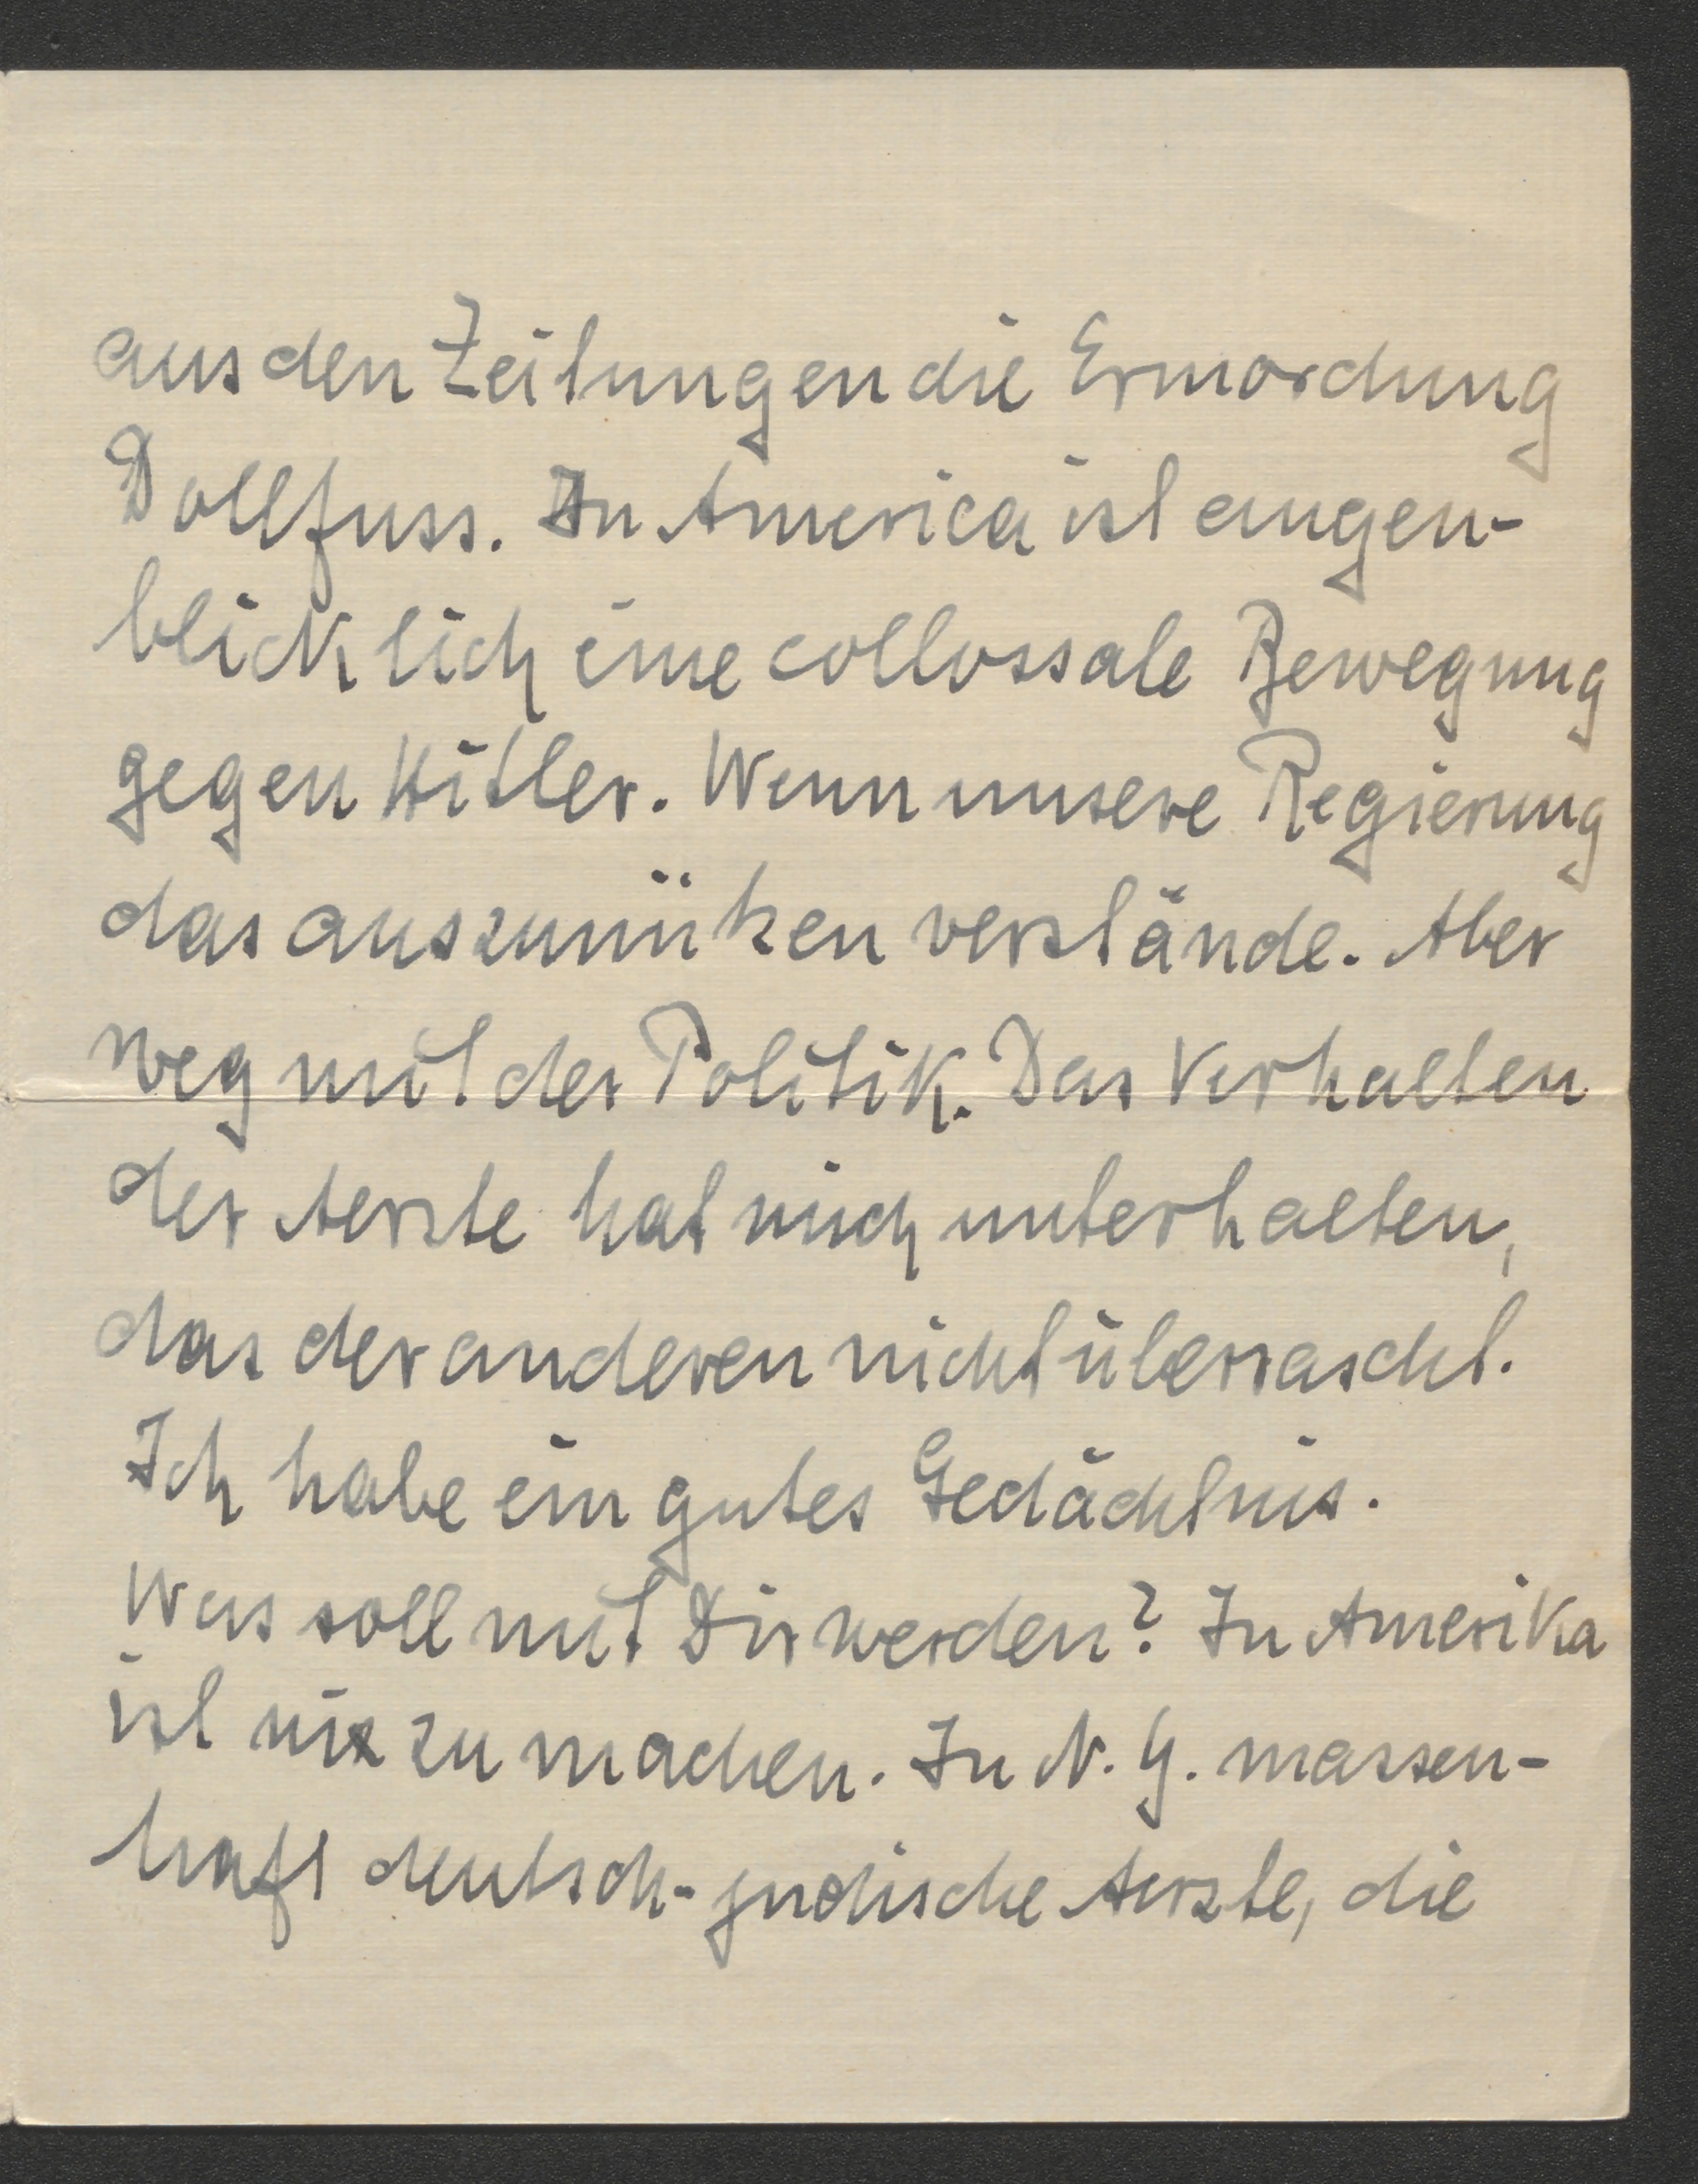 aus den Zeitungen die Ermordung
Dollfuss. In America ist augen-
blicklich eine collossale Bewegung
gegen Hitler. Wenn unsere Regierung
das auszunützen verstände. Aber
weg mit der Politik. Das Verhalten
der Aerzte hat mich unterhalten,
das der anderen nicht überrascht.
Ich habe ein gutes Gedächtnis.
Was soll mit Dir werden? In Amerika
ist nix zu machen. In N. Y. massen-
haft deutsch-jüdische Aerzte, die